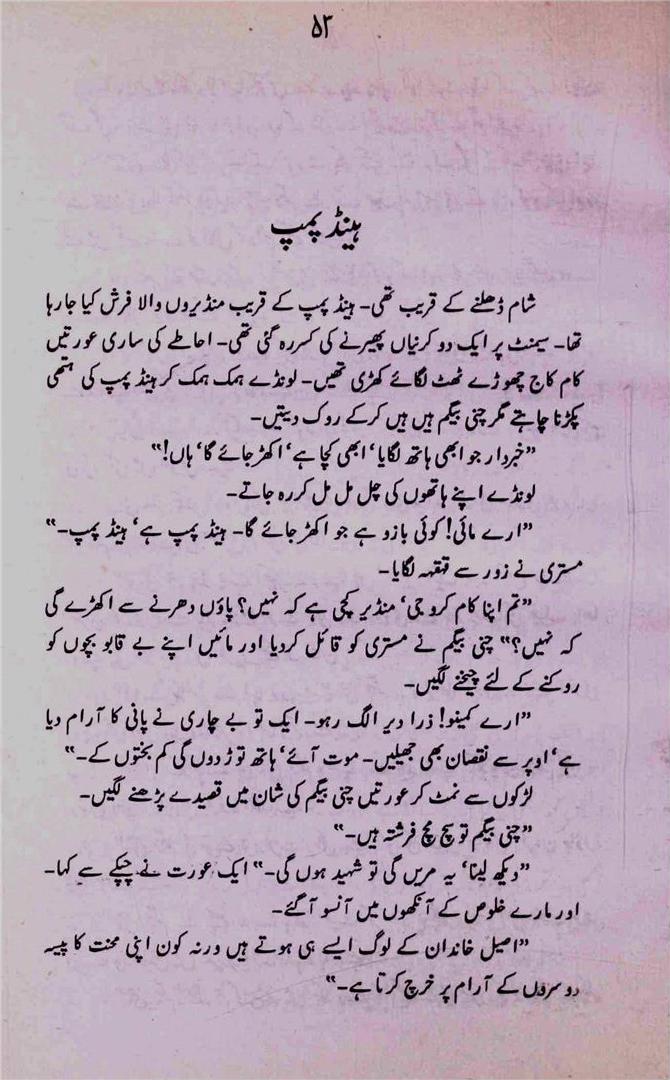 ۵۳
ہینڈ پمپ
شام ڈھلنے کے قریب تھی۔ ہینڈ پمپ کے قریب منڈیروں والا فرش کیا جا رہا
تھا۔ سیمنٹ پر ایک دو کرنیاں پھیرنے کی کسر رہ گئی تھی۔ احاطے کی ساری عورتیں
کام کاج چھوڑے ٹھٹ لگائے کھڑی تھیں۔ لونڈے ہمک ہمک کر ہینڈ پمپ کی ہتھی
پکڑنا چاہتے مگر چنی بیگم ہیں ہیں کرکے روک دیتیں۔
”خبردار جو ابھی ہاتھ لگایا‘ ابھی کچا ہے‘ اکھڑ جائے گا‘ ہاں!“
لونڈے اپنے ہاتھوں کی چل مل مل کر رہ جاتے۔
”ارے مائی! کوئی بازو ہے جو اکھڑ جائے گا۔ ہینڈ پمپ ہے‘ ہینڈ پمپ۔“
مستری نے زور سے قہقہہ لگایا۔
”تم اپنا کام کرو جی‘ منڈیر کچی ہے کہ نہیں؟ پاؤں دھرنے سے اکھڑے گی
کہ نہیں؟“ چنی بیگم نے مستری کو قائل کردیا اور مائیں اپنے بے قابو بچوں کو
روکنے کے لئے چیخنے لگیں۔
”ارے کمینو! ذرا دیر الگ رہو۔ ایک تو بے چاری نے پانی کا آرام دیا
ہے‘ اوپر سے نقصان بھی جھیلیں۔ موت آئے‘ ہاتھ توڑ دوں گی کم بختوں کے۔“
لڑکوں سے نمٹ کر عورتیں چنی بیگم کی شان میں قصیدے پڑھنے لگیں۔
”چنی بیگم تو سچ مچ فرشتہ ہیں۔“
”دیکھ لینا‘ یہ مریں گی تو شہید ہوں گی۔“ ایک عورت نے چپکے سے کہا۔
اور مارے خلوص کے آنکھوں میں آنسو آگئے۔
”اصیل خاندان کے لوگ ایسے ہی ہوتے ہیں ورنہ کون اپنی محنت کا پیسہ
دوسروں کے آرام پر خرچ کرتا ہے۔“